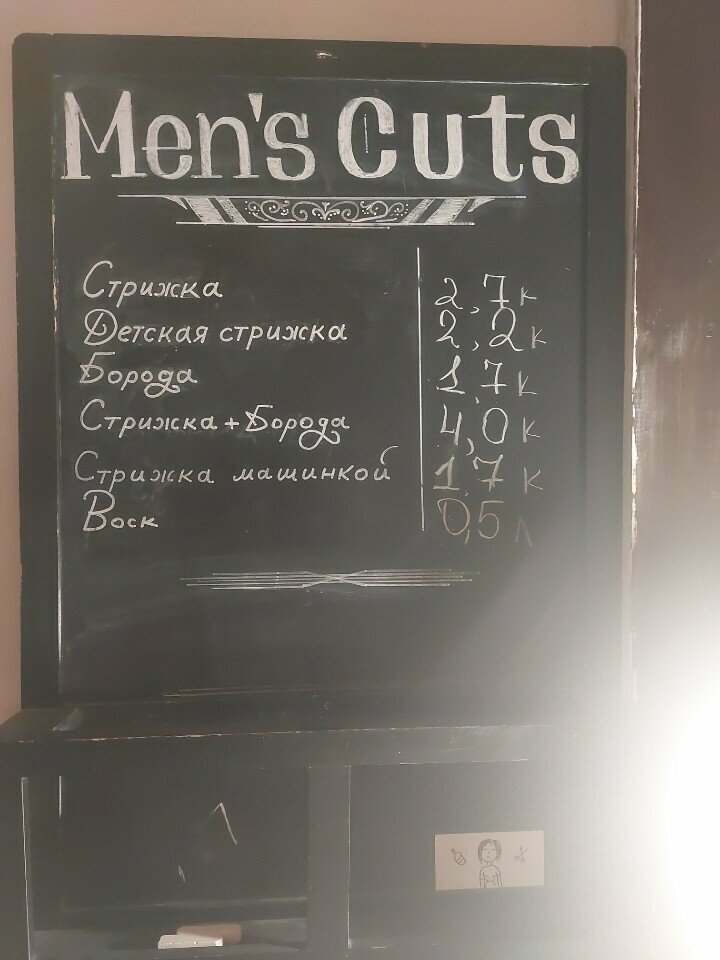 Men's Cuts
Стрижка 2,7к
Детская стрижка 2,2к
Борода 1,7к
Стрижка + Борода 4,0к
Стрижка машинкой 1,7к
Воск 0,5